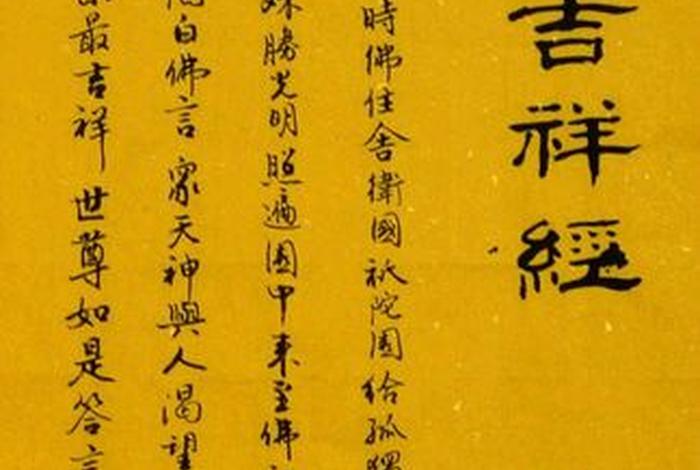 吉祥經
時佛住舍衛國祇陀園給孤獨
殊勝光明照遍園中來至佛
白佛言眾天神與人渴望
最吉祥世尊如是答言